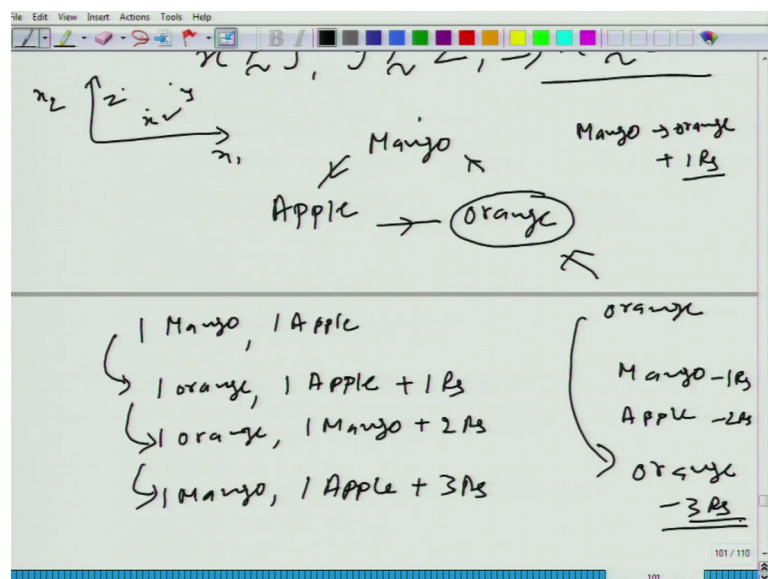 File Edit View Insert Actions Tools Help
x₂
z y
x
x₁
Mango
Apple → orange
Mango → orange
+ 1Rs
1 Mango, 1 Apple
1 orange, 1 Apple + 1Rs
1 orange, 1 Mango + 2Rs
1 Mango, 1 Apple + 3Rs
orange
Mango -1Rs
Apple -2Rs
orange
-3Rs
101 / 110
101